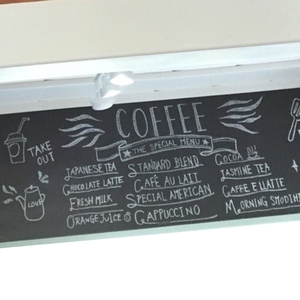 COFFEE
THE SPECIAL MENU
TAKE OUT
JAPANESE TEA
CHOCOLATE LATTE
FRESH MILK
ORANGE JUICE
STANDARD BLEND
CAFÉ AU LAIT
SPECIAL AMERICAN
CAPPUCCINO
COCOA
JASMINE TEA
CAFFE E LATTE
MORNING SMODIH
LOVE